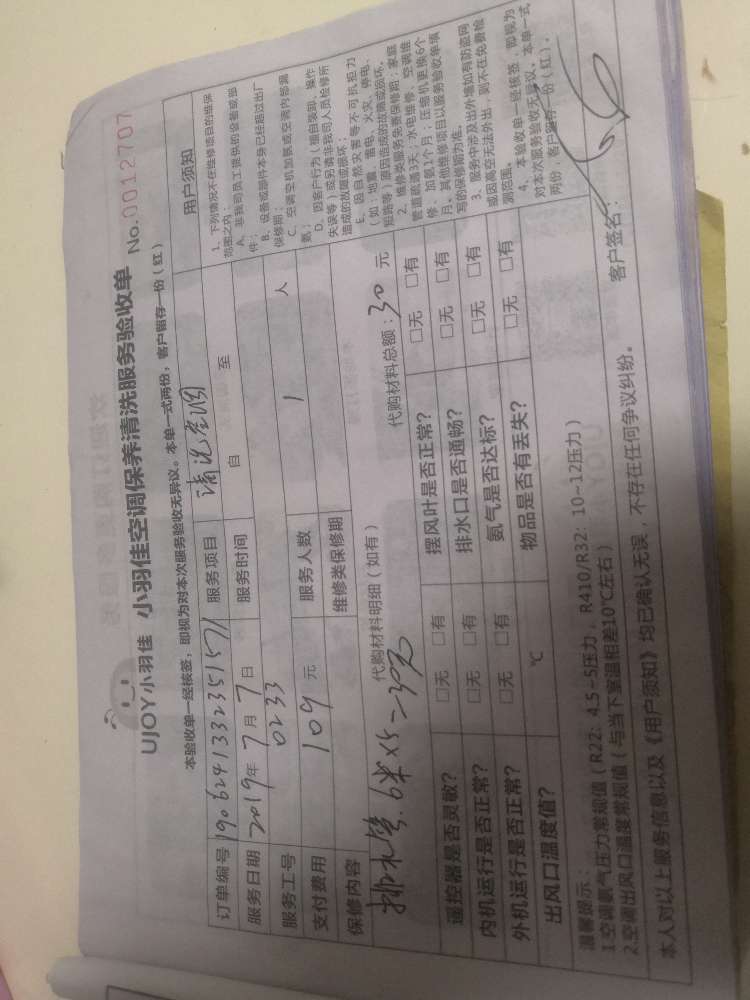 UJOY小羽佳 小羽佳空调保养清洗服务验收单 No.0012707
本验收单一经核签，即视为对本次服务验收无异议。本单一式两份，客户留存一份（红）
订单编号 1906241332351571 服务项目 清洗空调
服务日期 2019年7月7日 服务时间 自 至
服务工号 0233
支付费用 109 元 服务人数 1 人
维修类保修期
保修内容
代购材料明细（如有） 代购材料总额：30 元
排水管.6米×5=30元
遥控器是否灵敏? □无 □有 摆风叶是否正常? □无 □有
内机运行是否正常? □无 □有 排水口是否通畅? □无 □有
外机运行是否正常? □无 □有 氨气是否达标? □无 □有
出风口温度值? ℃ 物品是否有丢失? □无 □有
温馨提示：
1.空调氨气压力常规值（R22：4.5~5压力，R410/R32：10~12压力）
2.空调出风口温度常规值（与当下室温相差10℃左右）
本人对以上服务信息以及《用户须知》均已确认无误，不存在任何争议纠纷。 客户签名：
用户须知
1、下列情况不在维修项目的维保
范围之内：
A、非我司员工提供的设备或部
件；
B、设备或部件本身已经超过出厂
保修期；
C、空调空机加氨或空调内部漏
氨；
D、因客户行为（擅自装卸、操作
失误等）或另请非我司人员检修所
造成的故障或损坏；
E、因自然灾害等不可抗拒力
（如：地震、雷电、火灾、停电、
短路等）原因造成的故障或损坏。
2、维修类服务免费保修期：家庭
管道疏通3天；水电维修、空调维
修、加氨1个月；压缩机更换6个
月。其他维修项目以服务验收单填
写的保修期为准。
3、服务中涉及出外墙如有防盗网
或因高空无法外出，则不在免费检
测范围。
4、本验收单一经核签，即视为
对本次服务验收无异议。本单一式
两份，客户留存一份（红）。